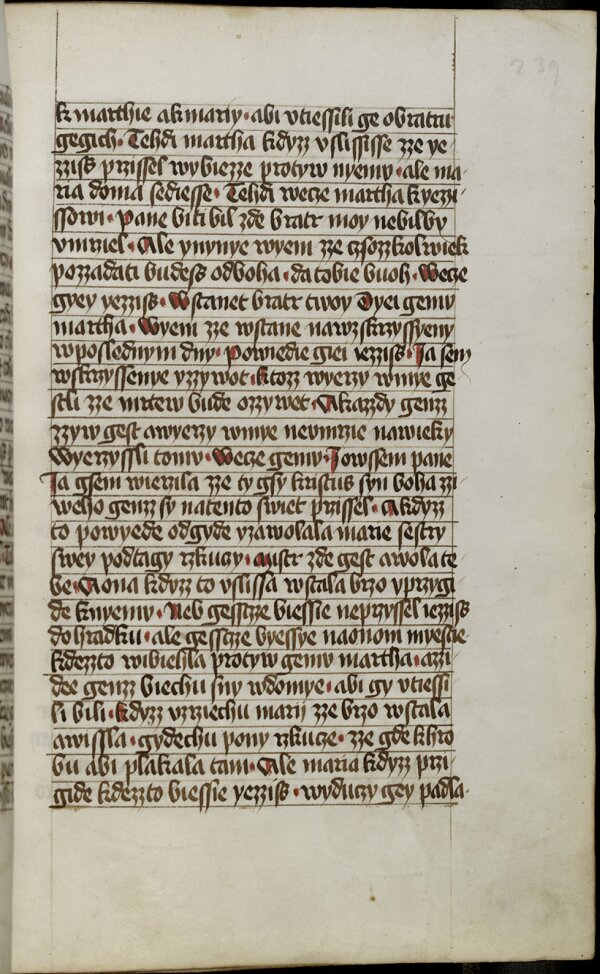 239
k marthie a k mariy · abi vtiessili ge o bratru
gegich · Tehdi martha kdyzz vslississe zze ye
zziss przissel wybiezze protyw nyemu · ale ma
ria doma sediesse · Tehdi wecze martha k yezzi
ssowi · pane biti bil zde bratr moy nebil by
vmrzel · Ale ynynye wyem zze czsozzkolwiek
pozzadati budess od boha · da tobie buoh · Wecze
gyey yezziss · Wstanet bratr twoy Dyei gemu
martha · Wyem zze wstane na wzskrzyssyeny
w poslednym dny · Powiedie giei iezziss · Ja sem
wskrzyssenye y zzywot · ktozz wyerzy w mye ge
stli zze mrtew bude ozzywet · A kazzdy genz
zzyw gest a wyerzy w mye neumrzie nawieky
Wyerzyssli tomu · Wecze gemu · Jowssem pane
Ja gsem wierzila zze ty gsy kristus syn boha zzi
weho genzz sy na tento swiet przissel · A kdyzz
to powyede odgyde y zawolala marie sestry
swey podtagy rzkuczy · mistr zde gest a wola te
be · A ona kdyzz to vslissa wstala brzo y przygi
de k nyemu · Neb gesstze biessie neprzyssel iezziss
do hradku · ale gesstze byessye na onom myestie
kdezzto wibiehla protyw gemu martha · a zzi
dee genzz biechu s ny w domye · abi gy vtiessi
li bili · kdyzz vzrziechu marij zze brzo wstala
a wissla · gydechu po ny rzkucze · zze gde k hro
bu abi plakala tam · Ale maria kdyzz przi
gide kdezzto biessie yezziss · wyduczy gey padla